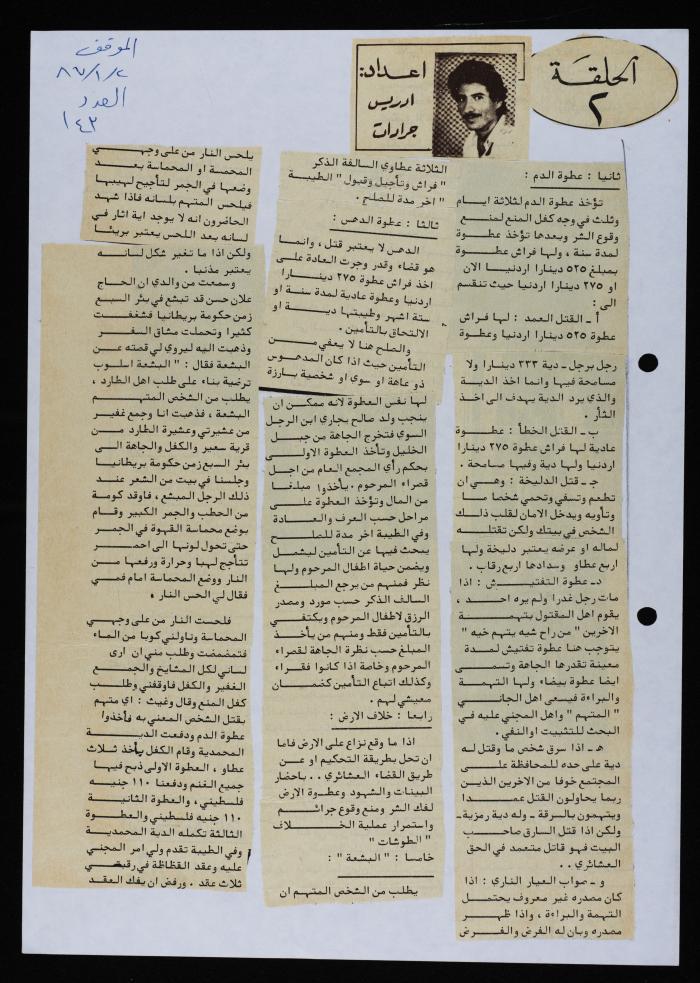 الموقف
٨٦/١/٢
العدد
١٤٣
اعداد:
ادريس
جرادات
الحلقة
٢
ثانيا : عطوة الدم :
تؤخذ عطوة الدم لثلاثة ايام
وثلث في وجه كفل المنع لمنع
وقوع الشر وبعدها تؤخذ عطوة
لمدة سنة ، ولها فراش عطوة
بمبلغ ٥٢٥ دينارا اردنيا الان
او ٢٧٥ دينارا اردنيا حيث تنقسم
الى :
أ ـ القتل العمد : لها فراش
عطوة ٥٢٥ دينارا اردنيا وعطوة
رجل برجل ـ دية ٣٣٣ دينارا ولا
سامحة فيها وانما اخذ الدية
والذي يرد الدية يهدف الى اخذ
الثأر .
ب ـ القتل الخطأ : عطوة
عادية لها فراش عطوة ٢٧٥ دينارا
اردنيا ولها دية وفيها سامحة .
جـ ـ قتل الدليخة : وهي ان
تطعم وتسقي وتحمي شخصا ما
وتأويه ويدخل الامان لقلب ذلك
الشخص في بيتك ولكن تقتله
لماله او عرضه يعتبر دليخة ولها
اربع عطاو وسدادها اربع رقاب .
د ـ عطوة التفتيش : اذا
مات رجل غدرا ولم يره احد ،
يقوم اهل المقتول بتهمة
الاخرين " من راح شيه يتهم خيه "
يتوجب هنا عطوة تفتيش لمدة
معينة تقدرها الجاهة وتسمى
ايضا عطوة بيضاء ولها التهمة
والبراءة فيسعى اهل الجاني
" المتهم " واهل المجني عليه في
البحث للتثبيت والنفي .
هـ ـ اذا سرق شخص ما وقتل له
دية على حده للمحافظة على
المجتمع خوفا من الاخرين الذين
ربما يحاولون القتل عمدا
ويتهمون بالسرقة ـ وله دية رمزية ـ
ولكن اذا قتل السارق صاحب
البيت فهو قاتل متعمد في الحق
العشائري ..
و ـ صواب العيار الناري : اذا
كان مصدره غير معروف يحتمل
التهمة والبراءة ، واذا ظهر
مصدره وبان له الغرض والغرض
الثلاثة عطاوي السالفة الذكر
" فراش وتأجيل وقبول " الطيبة
" اخر مدة للصلح .
ثالثا : عطوة الدهس :
الدهس لا يعتبر قتل ، وانما
هو قضاء وقدر وجرت العادة على
اخذ فراش عطوة ٢٧٥ دينارا
اردنيا وعطوة عادية لمدة سنة او
ستة اشهر وطيبتها دية او
الالتحاق بالتأمين .
والصلح هنا لا يعفي من
التأمين حيث اذا كان المدهوس
ذو عاهة او سوي او شخصية بارزة
لها نفس العطوة لانه ممكن ان
ينجب ولد صالح يجاري ابن الرجل
السوي فتخرج الجاهة من جبل
الخليل وتأخذ العطوة الاولى
بحكم رأي المجمع العام من اجل
قصراء المرحوم . يأخذوا مبلغا
من المال وتؤخذ العطوة على
مراحل حسب العرف والعادة
وفي الطيبة اخر مدة للصلح
يبحث فيها عن التأمين ليشمل
ويضمن حياة اطفال المرحوم ولها
نظر فمنهم من يرجع المبلغ
السالف الذكر حسب مورد ومصدر
الرزق لاطفال المرحوم ويكتفي
بالتأمين فقط ومنهم من يأخذ
المبلغ حسب نظرة الجاهة لقصراء
المرحوم وخاصة اذا كانوا فقراء
وكذلك اتباع التأمين كضمان
معيشي لهم .
رابعا : خلاف الارض :
اذا ما وقع نزاع على الارض فاما
ان تحل بطريقة التحكيم او عن
طريق القضاء العشائري .. باحضار
البينات والشهود وعطوة الارض
لفك الشر ومنع وقوع جرائم
واستمرار عملية الخلاف
" الطوشات "
خامسا : " البشعة " :
يطلب من الشخص المتهم ان
يلحس النار من على وجهي
المحمسة او المحماسة بعد
وضعها في الجمر لتأجيج لهيبها
فيلحس المتهم بلسانه فاذا شهد
الحاضرون انه لا يوجد اية اثار في
لسانه بعد اللحس يعتبر بريئا
ولكن اذا ما تغير شكل لسانه
يعتبر مذنبا .
وسمعت من والدي ان الحاج
علان حسن قد تبشع في بئر السبع
زمن حكومة بريطانيا فشغفت
كثيرا وتحملت مشاق السفر
وذهبت اليه ليروي لي قصته عن
البشعة فقال : " البشعة اسلوب
ترضية بناء على طلب اهل الطارد ،
يطلب من الشخص المتهم
البشعة ، فذهبت انا وجمع غفير
من عشيرتي وعشيرة الطارد من
قرية سعير والكفل والجاهة الى
بئر السبع زمن حكومة بريطانيا
وجلسنا في بيت من الشعر عند
ذلك الرجل المبشع ، فاوقد كومة
من الحطب والجمر الكبير وقام
بوضع محماسة القهوة في الجمر
حتى تحول لونها الى احمر
تتأجج لهبا وحرارة ورفعها من
النار ووضع المحماسة امام فمي
فقال لي الحس النار ،
فلحست النار من على وجهي
المحماسة وناولني كوبا من الماء
فتمضمضت وطلب مني ان ارى
لساني لكل المشايخ والجمع
الغفير والكفل فاوقفني وطلب
كفل المنع وقال وغيث : اي متهم
بقتل الشخص المعني به فأخذوا
عطوة الدم ودفعت الدية
المحمدية وقام الكفل بأخذ ثلاث
عطاو ، العطوة الاولى ذبح فيها
جميع الغنم ودفعنا ١١٠ جنيه
فلسطيني ، والعطوة الثانية
١١٠ جنيه فلسطيني والعطوة
الثالثة تكمله الدية المحمدية
وفي الطيبة تقدم ولي امر المجني
عليه وعقد القظاظة في رقبتي
ثلاث عقد . ورفض ان يفك العقد